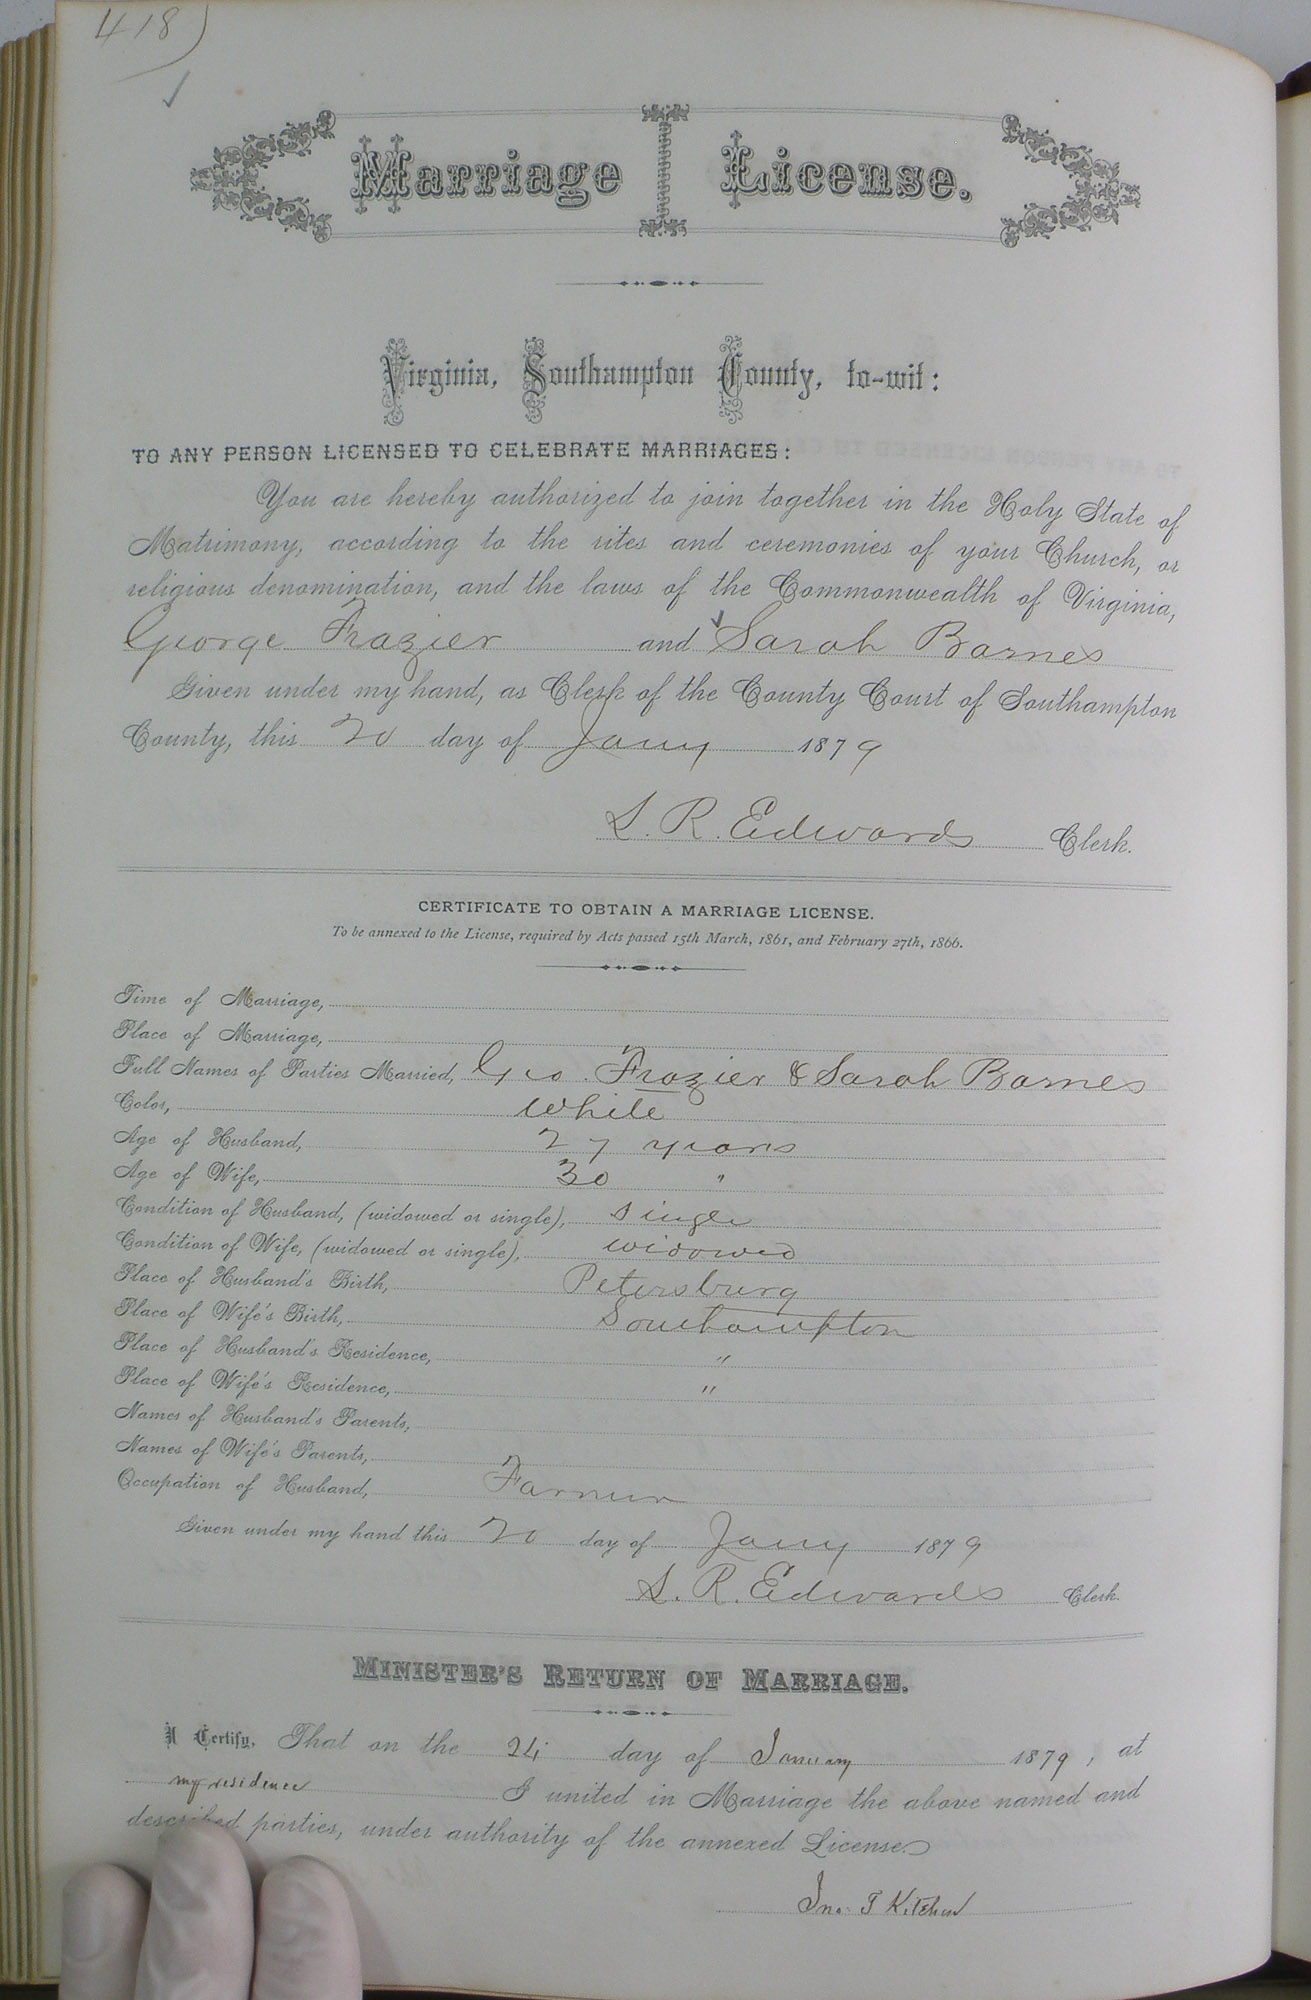 418)
Marriage License.
Virginia, Southampton County, to-wit:
TO ANY PERSON LICENSED TO CELEBRATE MARRIAGES:
You are hereby authorized to join together in the Holy State of
Matrimony, according to the rites and ceremonies of your Church, or
religious denomination, and the laws of the Commonwealth of Virginia,
George Frazier and Sarah Barnes
Given under my hand, as Clerk of the County Court of Southampton
County, this 20 day of Jany 1879
L. R. Edwards Clerk.
CERTIFICATE TO OBTAIN A MARRIAGE LICENSE.
To be annexed to the License, required by Acts passed 15th March, 1861, and February 27th, 1866.
Time of Marriage,
Place of Marriage,
Full Names of Parties Married, Geo. Frazier & Sarah Barnes
Color, White
Age of Husband, 27 years
Age of Wife, 30 "
Condition of Husband, (widowed or single), single
Condition of Wife, (widowed or single), widowed
Place of Husband's Birth, Petersburg
Place of Wife's Birth, Southampton
Place of Husband's Residence, "
Place of Wife's Residence, "
Names of Husband's Parents,
Names of Wife's Parents,
Occupation of Husband, Farmer
Given under my hand this 20 day of Jany 1879
L. R. Edwards Clerk.
MINISTER'S RETURN OF MARRIAGE.
I Certify, That on the day of January 1879, at
my residence I united in Marriage the above named and
described parties, under authority of the annexed License.
Jno. T Kitchen